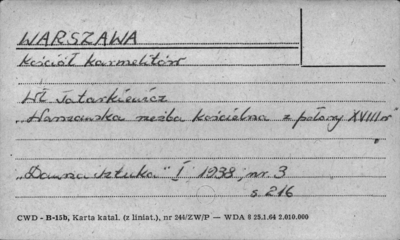 WARSZAWA
Kościół Karmelitów
Wł Tatarkiewicz
„Warszawska rzeźba kościelna z połowy XVIII w"
„Dawna sztuka" I 1938, nr. 3
s. 216
CWD - B-15b, Karta katal. (z liniat.), nr 244/ZW/P — WDA 8 25.1.64 2.010.000